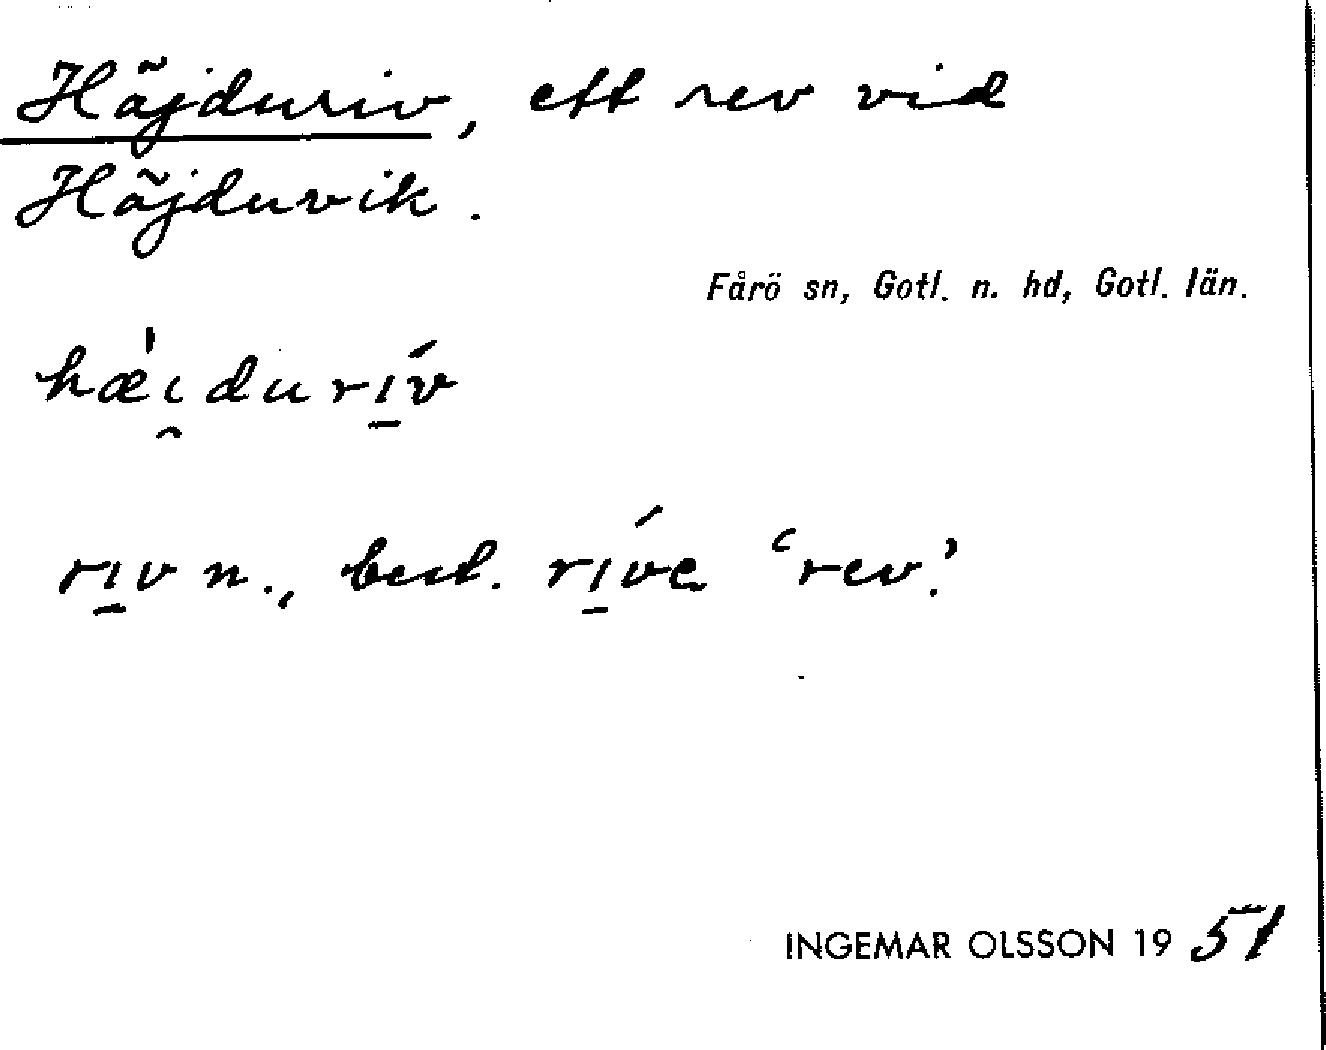 Häjduriv, ett rev vid
Häjduvik.
Fårö sn, Gotl. n. hd, Gotl. län.
hæ̍ı̯durı̱́v
rı̱v n., best. rı̱́ve ‘rev’.
INGEMAR OLSSON 1951